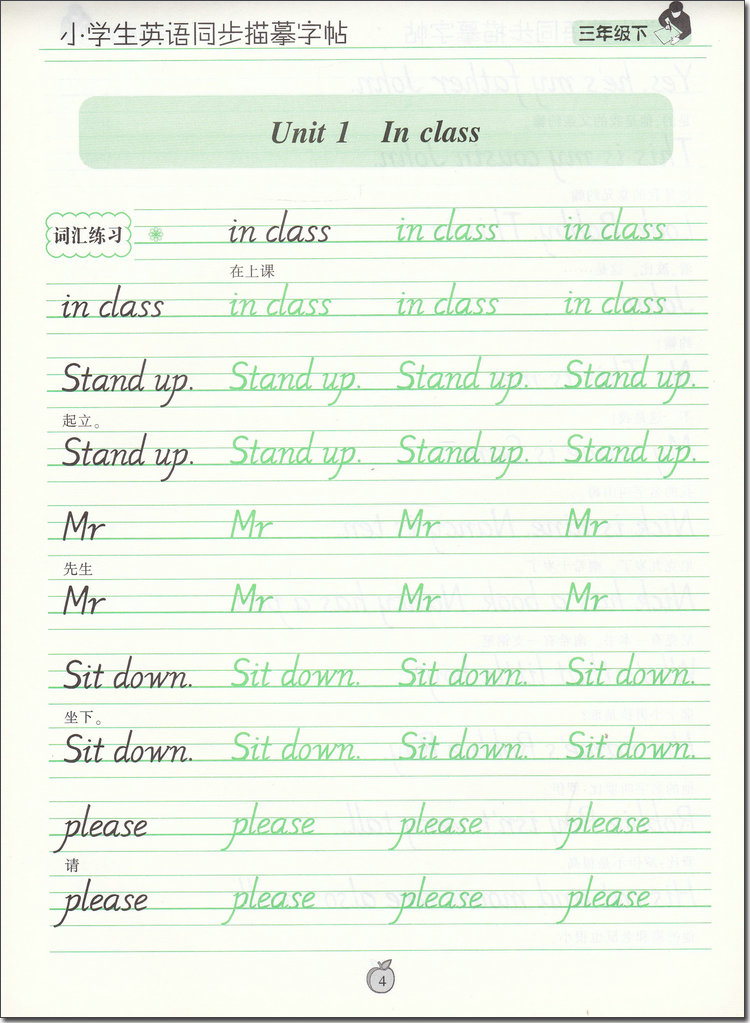 小学生英语同步描摹字帖 三年级下
Unit 1 In class
词汇练习 in class in class in class
在上课
in class in class in class in class
Stand up. Stand up. Stand up. Stand up.
起立。
Stand up. Stand up. Stand up. Stand up.
Mr Mr Mr Mr
先生
Mr Mr Mr Mr
Sit down. Sit down. Sit down. Sit down.
坐下。
Sit down. Sit down. Sit down. Sit down.
please please please please
请
please please please please
4